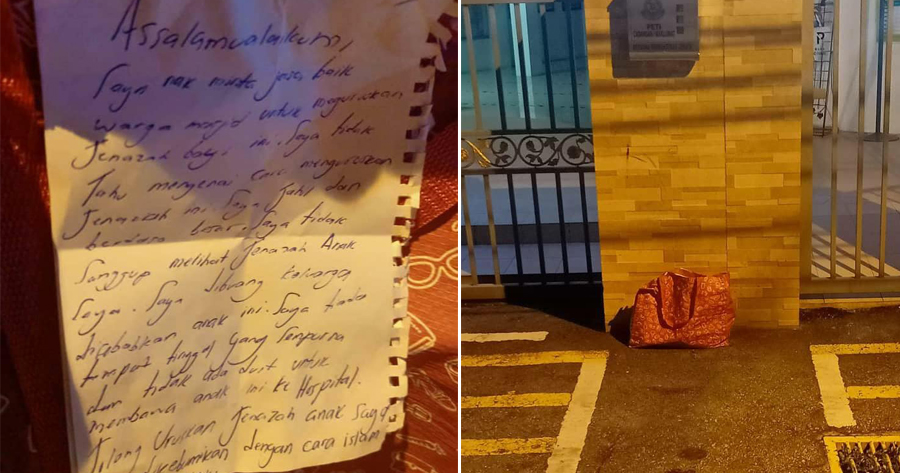 Assalamualaikum,
Saya nak minta jasa baik
warga masjid untuk menguruskan
Jenazah bayi ini. Saya tidak
Tahu mengenai cara menguruskan
Jenazah ini. Saya Jahil dan
berdosa besar. Saya tidak
Sanggup melihat Jenazah Anak
Saya. Saya dibuang keluarga
disebabkan anak ini. Saya tiada
tempat tinggal yang Sempurna
dan tidak ada duit untuk
membawa anak ini ke Hospital.
Tolong Uruskan Jenazah anak Saya
dikebumikan dengan cara islam
PETI